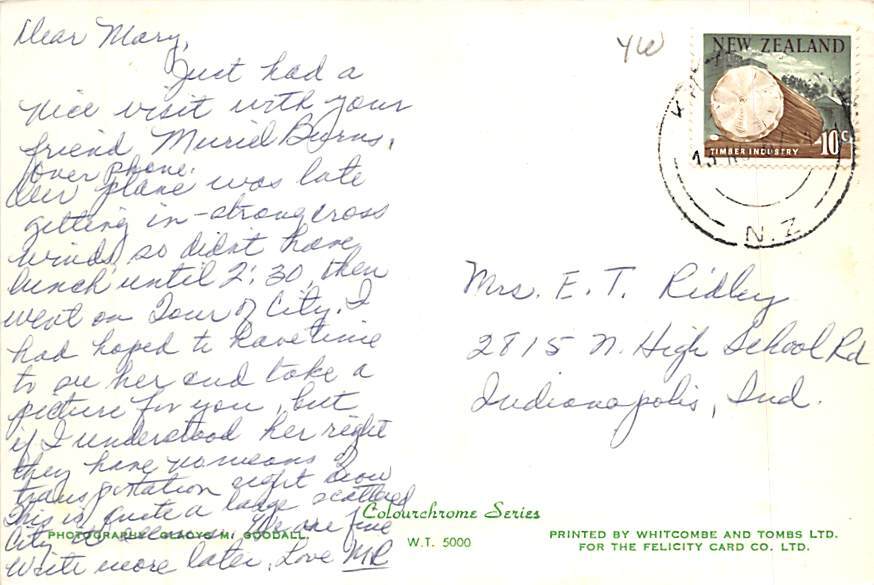 Dear Mary,
Just had a
nice visit with your
friend, Muriel Burns,
(over phone.
Our plane was late
getting in - strong cross
winds, so didn't have
lunch until 2:30, then
went on Tour of City. I
had hoped to have time
to see her and take a
picture for you, but
if I understood her right
they have no means of
transportation right now
This is quite a large scattered
City it seems. We are fine
Write more later, Love MR
YW
NEW ZEALAND
TIMBER INDUSTRY
10c
N.Z.
Mrs. E. T. Ridley
2815 N. High School Rd
Indianapolis, Ind.
Colourchrome Series
PHOTOGRAPHY GLADYS M. GOODALL.
W.T. 5000
PRINTED BY WHITCOMBE AND TOMBS LTD.
FOR THE FELICITY CARD CO. LTD.